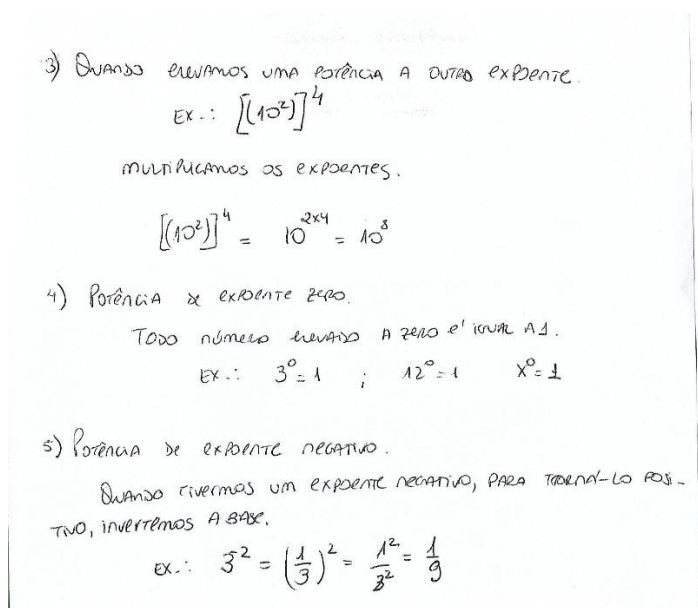 3) Quando elevamos uma potência a outro expoente.
Ex.: [(10²)]⁴
multiplicamos os expoentes.
[(10²)]⁴ = 10²ˣ⁴ = 10⁸
4) Potência de expoente zero.
Todo número elevado a zero é igual a 1.
Ex.: 3⁰=1 ; 12⁰=1 x⁰=1
5) Potência de expoente negativo.
Quando tivermos um expoente negativo, para torná-lo posi-
tivo, invertemos a base.
Ex.: 3⁻² = (1/3)² = 1²/3² = 1/9